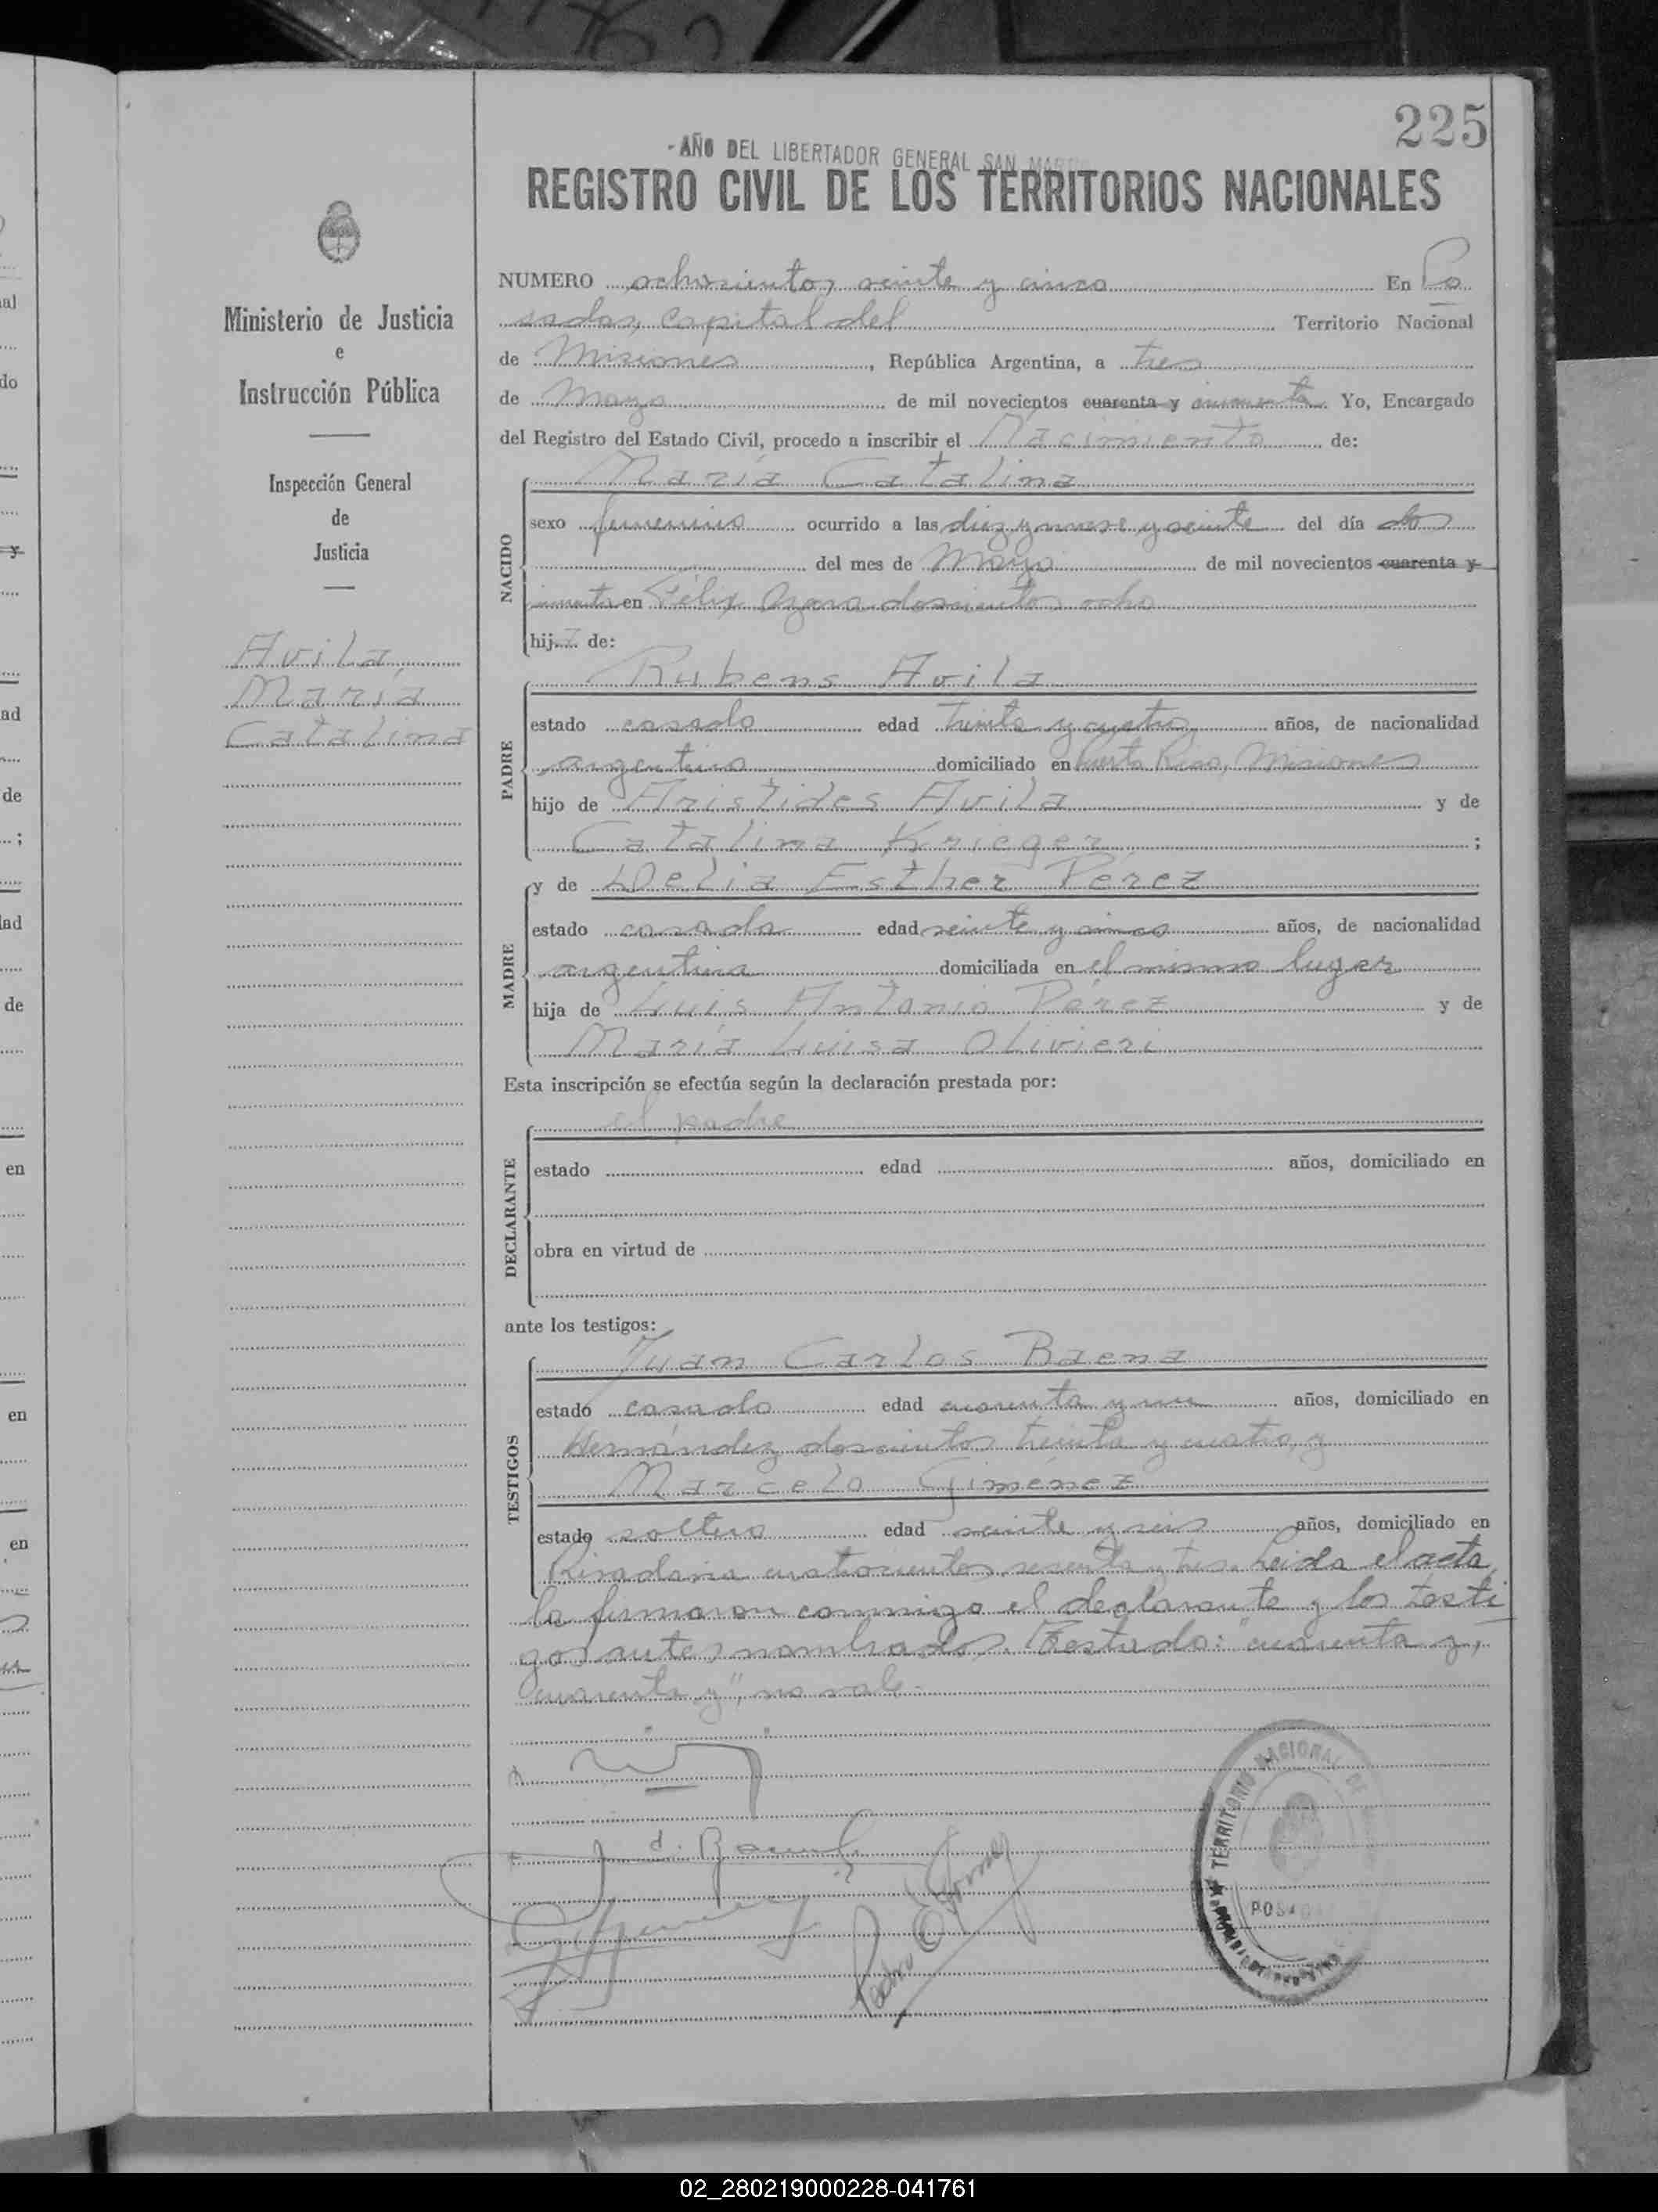 225
-AÑO DEL LIBERTADOR GENERAL SAN MARTIN
REGISTRO CIVIL DE LOS TERRITORIOS NACIONALES
Ministerio de Justicia
e
Instrucción Pública
Inspección General
de
Justicia
Avila,
María
Catalina
NUMERO ochocientos veinte y cinco En Po
sadas, capital del Territorio Nacional
de Misiones, República Argentina, a tres
de Mayo de mil novecientos cuarenta y cincuenta Yo, Encargado
del Registro del Estado Civil, procedo a inscribir el Nacimiento de:
NACIDO
María Catalina
sexo femenino ocurrido a las diez y nueve y veinte del día dos
del mes de Mayo de mil novecientos cuarenta y
cincuenta en Félix Azara doscientos ocho
hija de:
PADRE
Rubens Avila
estado casado edad treinta y cuatro años, de nacionalidad
argentino domiciliado en Puerto Rico, Misiones
hijo de Aristides Avila y de
Catalina Krieger ;
MADRE
y de Delia Esther Pérez
estado casada edad veinte y cinco años, de nacionalidad
argentina domiciliada en el mismo lugar
hija de Luis Antonio Pérez y de
María Luisa Olivieri
Esta inscripción se efectúa según la declaración prestada por:
DECLARANTE
el padre
estado edad años, domiciliado en
obra en virtud de
ante los testigos:
TESTIGOS
Juan Carlos Baena
estado casado edad cuarenta y un años, domiciliado en
Hernández doscientos treinta y cuatro, y
Marcelo Giménez
estado soltero edad veinte y seis años, domiciliado en
Rivadavia cuatrocientos sesenta y tres. Leida el acta,
la firmaron conmigo el declarante y los testi
gos antes nombrados. Testado: "cuarenta y,
cuarenta y", no vale.-
TERRITORIO NACIONAL DE
02_280219000228-041761